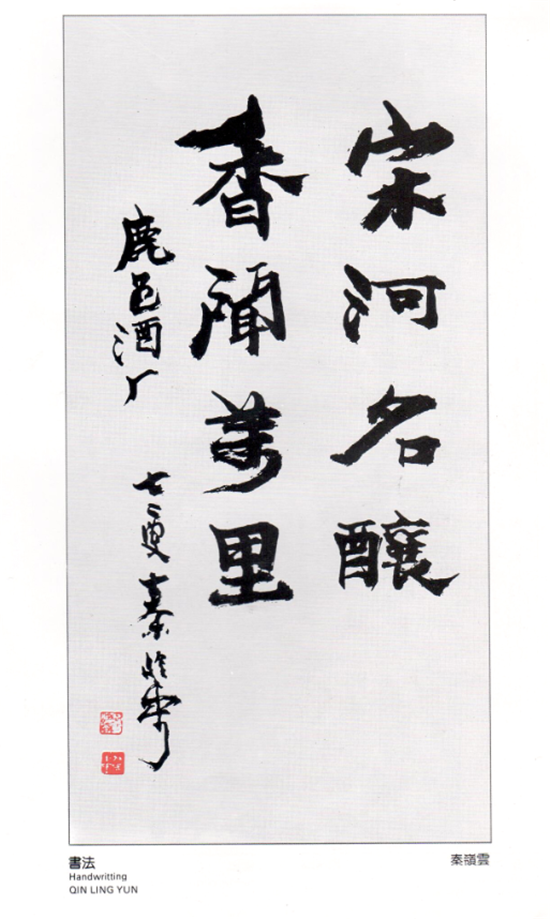 宋河名釀
香聞萬里
鹿邑酒厂
七十二叟秦岭雲
書法
秦嶺雲
Handwritting
QIN LING YUN